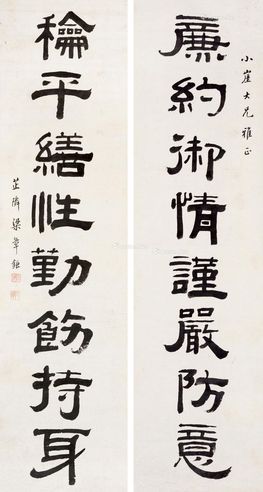 小崖大兄雅正
廉約御情謹嚴防意
龢平繕性勤飭持身
茝隣梁章鉅